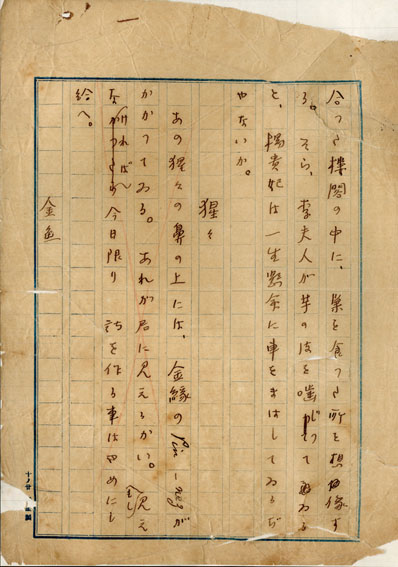 合つた楼閣の中に、巣を食つた所を想像す
る。そら、李夫人が芋の皮を噛じつてゐる
と、楊貴妃は一生懸命に車をまはしてゐるぢ
やないか。
猩々
あの猩々の鼻の上には、金縁のPince-nezが
かかつてゐる。あれが君に見えるかい。もし見え
なければ、今日限り詩を作る事はやめにし
給へ。
金魚
十ノ廿